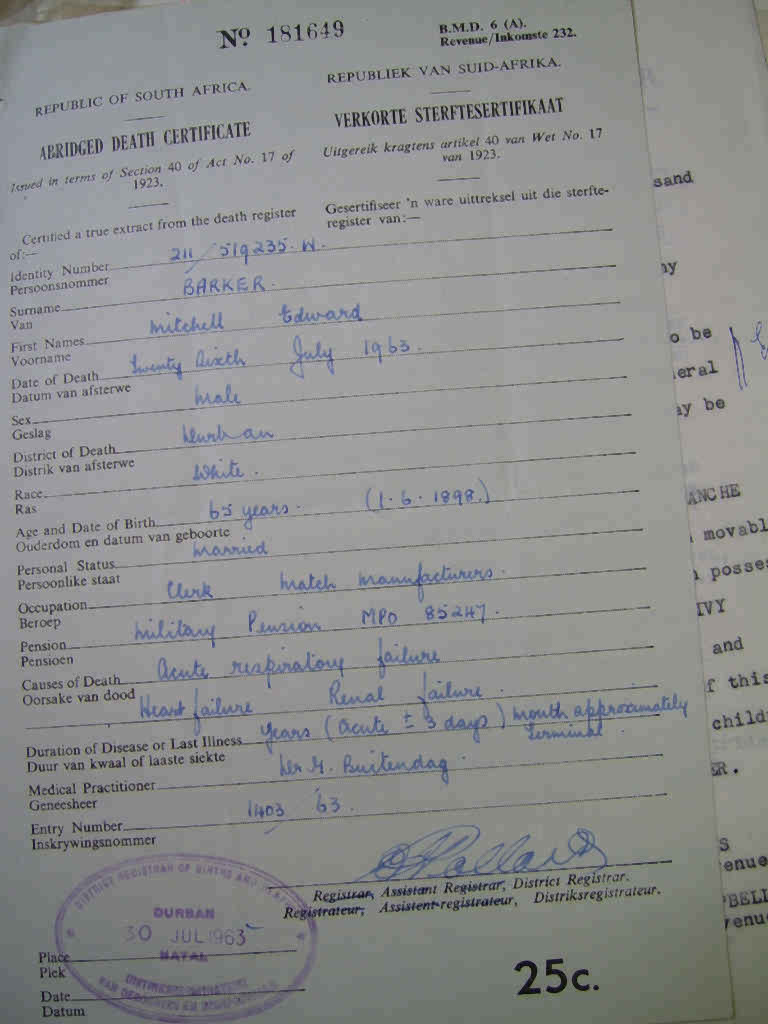 No 181649
B.M.D. 6 (A).
Revenue/Inkomste 232.
REPUBLIC OF SOUTH AFRICA.
REPUBLIEK VAN SUID-AFRIKA.
ABRIDGED DEATH CERTIFICATE
VERKORTE STERFTESERTIFIKAAT
Issued in terms of Section 40 of Act No. 17 of
1923.
Uitgereik kragtens artikel 40 van Wet No. 17
van 1923.
Certified a true extract from the death register
of:—
Gesertifiseer 'n ware uittreksel uit die sterfte-
register van:—
Identity Number 211/519235. W.
Persoonsnommer
Surname BARKER.
Van
First Names Mitchell Edward
Voorname
Date of Death Twenty Sixth July 1963.
Datum van afsterwe
Sex Male
Geslag
District of Death Durban
Distrik van afsterwe
Race White.
Ras
Age and Date of Birth 65 years. (1.6.1898.)
Ouderdom en datum van geboorte
Personal Status Married
Persoonlike staat
Occupation Clerk Match Manufacturers.
Beroep
Pension Military Pension MPO 85247.
Pensioen
Causes of Death Acute respiratory failure
Oorsake van dood Heart failure Renal failure.
Duration of Disease or Last Illness years (Acute ± 3 days) month approximately
Duur van kwaal of laaste siekte terminal.
Medical Practitioner Dr G. Buitendag.
Geneesheer
Entry Number 1403/63.
Inskrywingsnommer
Registrar, Assistant Registrar, District Registrar.
Registrateur, Assistent-registrateur, Distriksregistrateur.
DISTRICT REGISTRAR OF BIRTHS AND
DURBAN
30 JUL 1963
NATAL
Place
Plek
Date
Datum
25c.
sand
hy
o be
eral
ay be
ANCHE
movabl
posses
IVY
and
f this
child
ER.
S
enue
BELL
venu